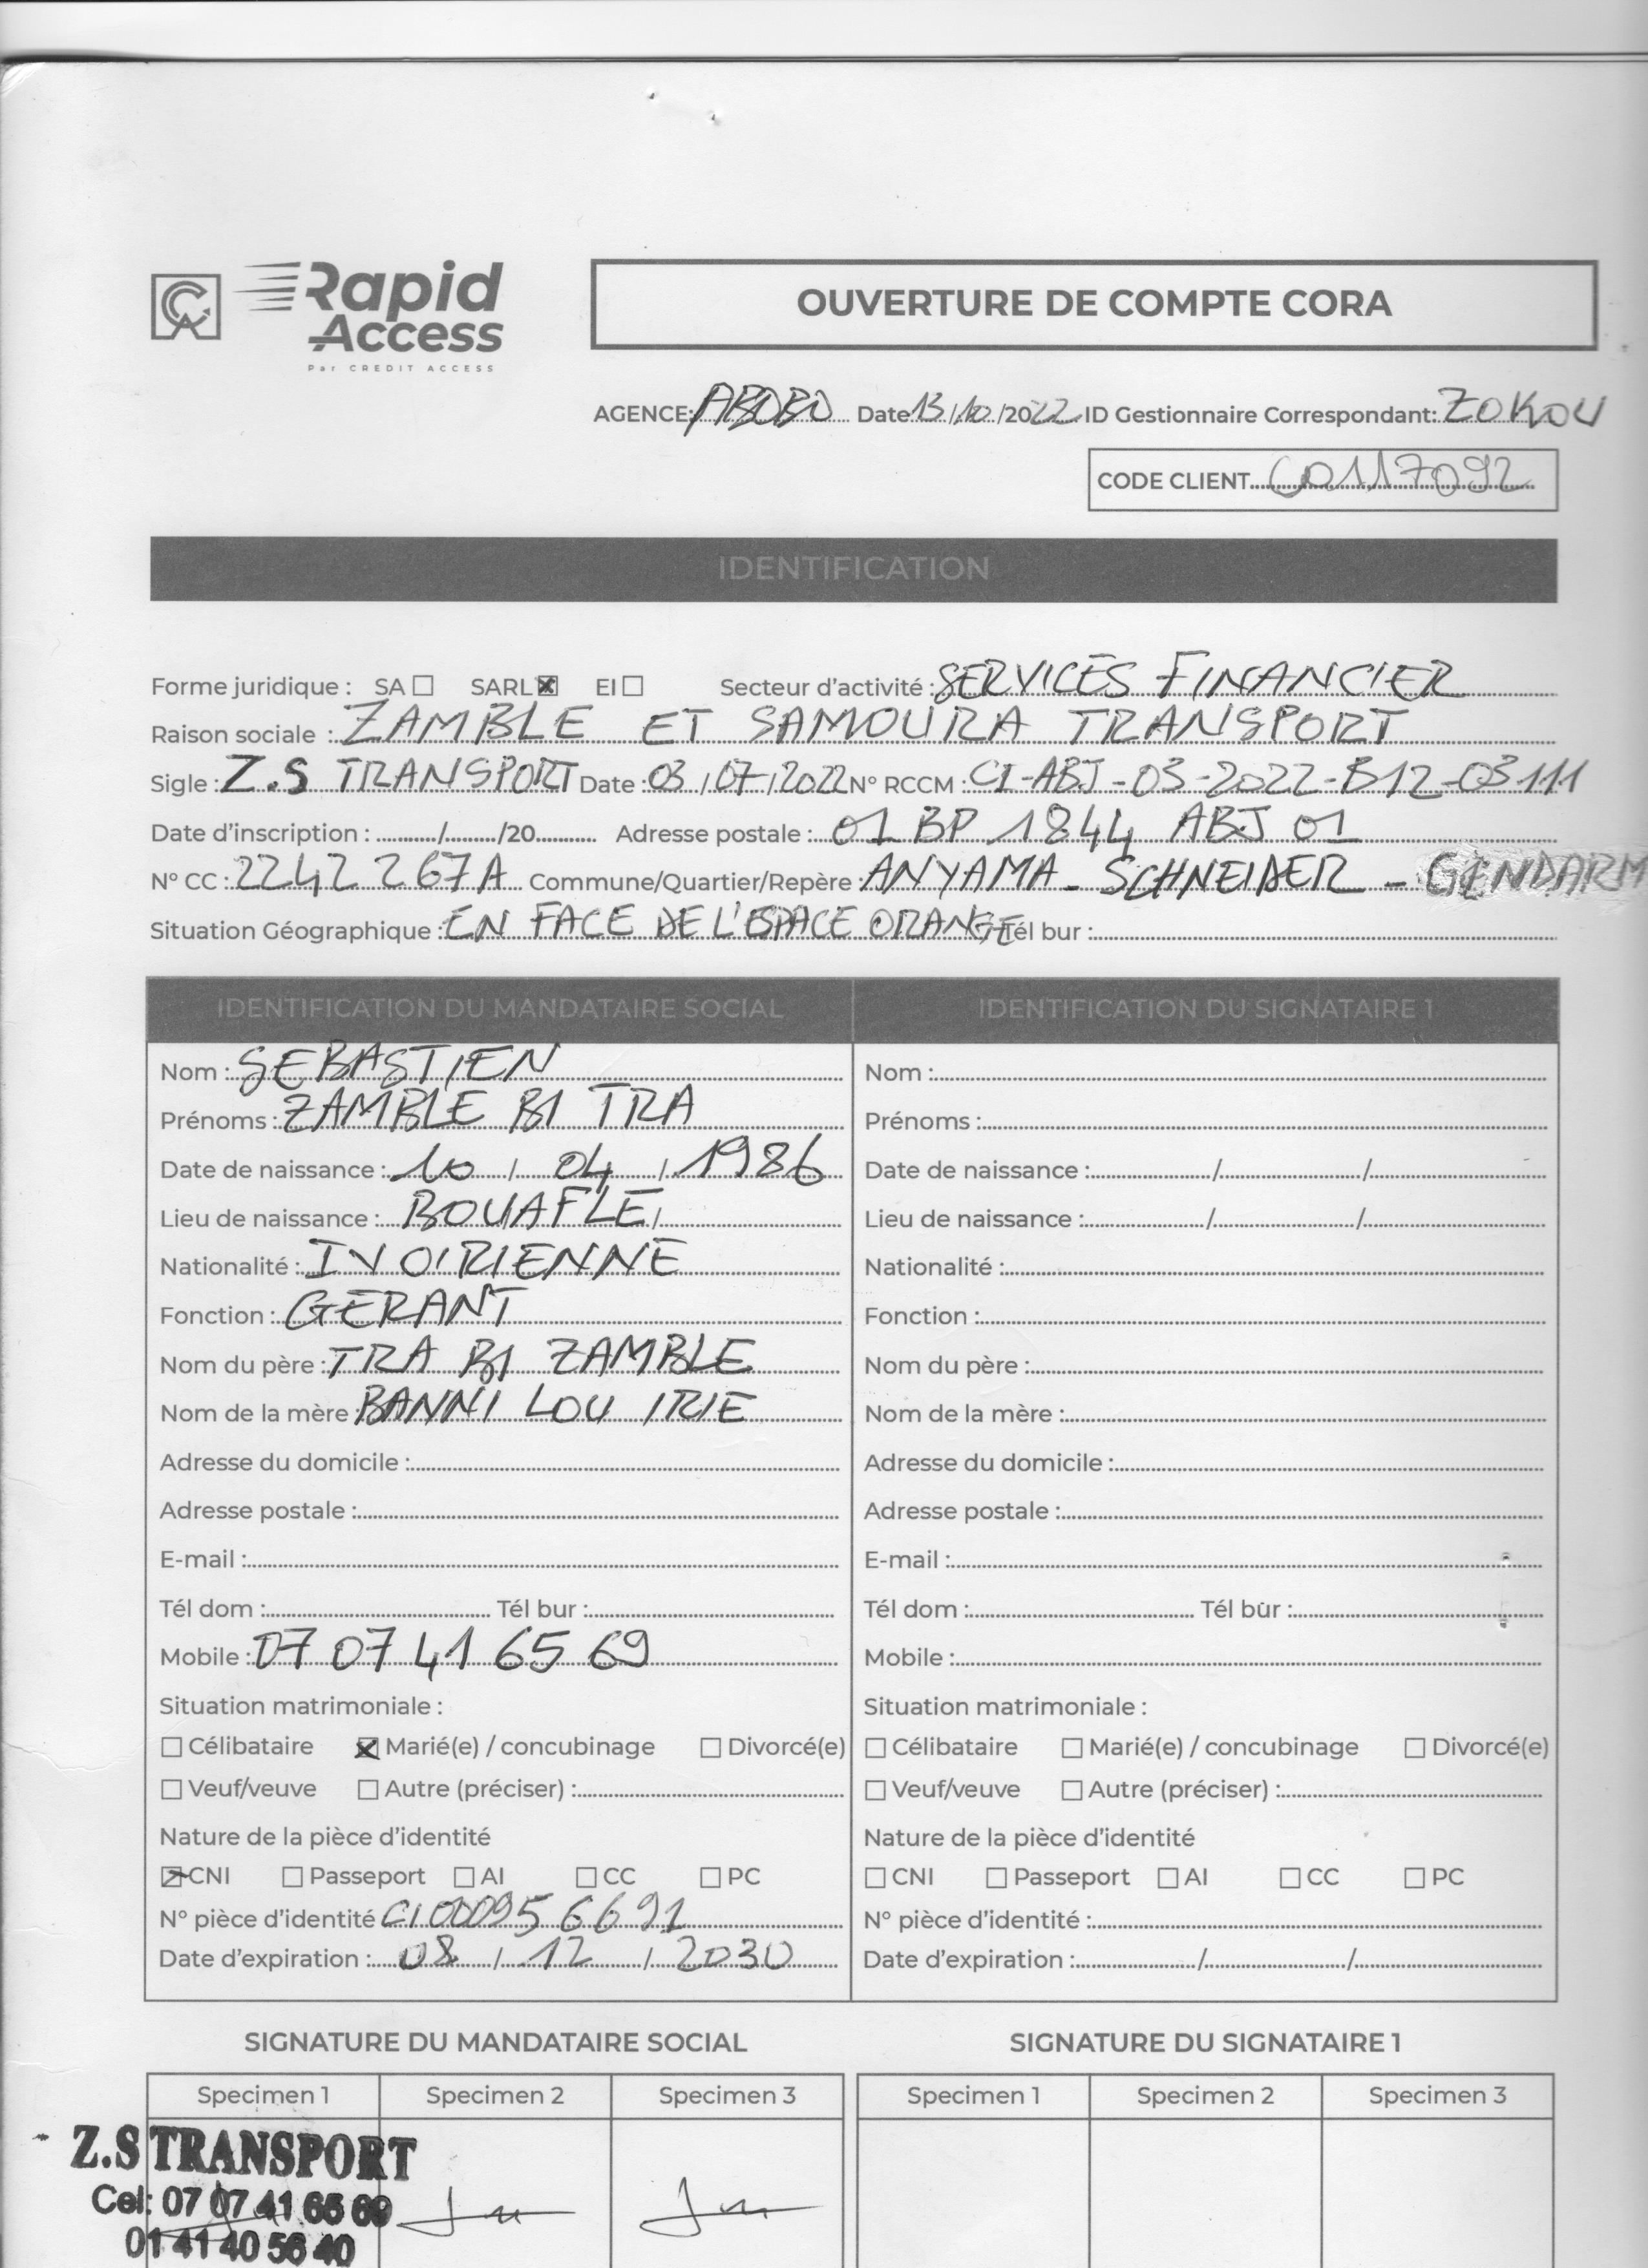 Rapid Access
Par CREDIT ACCESS
OUVERTURE DE COMPTE CORA
AGENCE: ABOBO Date 13/10/2022 ID Gestionnaire Correspondant: ZOKOU
CODE CLIENT C0117092
IDENTIFICATION
Forme juridique : SA ☐ SARL ☒ EI ☐ Secteur d'activité : SERVICES FINANCIER
Raison sociale : ZAMBLE ET SAMOURA TRANSPORT
Sigle : Z.S TRANSPORT Date : 03/07/2022 N° RCCM : CI-ABJ-03-2022-B12-03111
Date d'inscription : ........../........./20........... Adresse postale : 01 BP 1844 ABJ 01
N° CC : 2242267A Commune/Quartier/Repère : ANYAMA - SCHNEIDER - GENDARM
Situation Géographique : EN FACE DE L'ESPACE ORANGE Tél bur :
IDENTIFICATION DU MANDATAIRE SOCIAL
Nom : SEBASTIEN
Prénoms : ZAMBLE BI TRA
Date de naissance : 10 / 04 / 1986
Lieu de naissance : BOUAFLE
Nationalité : IVOIRIENNE
Fonction : GERANT
Nom du père : TRA BI ZAMBLE
Nom de la mère : BANNI LOU IRIE
Adresse du domicile :
Adresse postale :
E-mail :
Tél dom : Tél bur :
Mobile : 07 07 41 65 69
Situation matrimoniale :
☐ Célibataire ☒ Marié(e) / concubinage ☐ Divorcé(e)
☐ Veuf/veuve ☐ Autre (préciser) :
Nature de la pièce d'identité
☒ CNI ☐ Passeport ☐ AI ☐ CC ☐ PC
N° pièce d'identité CI000956691
Date d'expiration : 08 / 12 / 2030
IDENTIFICATION DU SIGNATAIRE 1
Nom :
Prénoms :
Date de naissance : / /
Lieu de naissance : / /
Nationalité :
Fonction :
Nom du père :
Nom de la mère :
Adresse du domicile :
Adresse postale :
E-mail :
Tél dom : Tél bur :
Mobile :
Situation matrimoniale :
☐ Célibataire ☐ Marié(e) / concubinage ☐ Divorcé(e)
☐ Veuf/veuve ☐ Autre (préciser) :
Nature de la pièce d'identité
☐ CNI ☐ Passeport ☐ AI ☐ CC ☐ PC
N° pièce d'identité :
Date d'expiration : / /
SIGNATURE DU MANDATAIRE SOCIAL
Specimen 1 Specimen 2 Specimen 3
Z.S TRANSPORT
Cel: 07 07 41 65 69
01 41 40 56 40
SIGNATURE DU SIGNATAIRE 1
Specimen 1 Specimen 2 Specimen 3